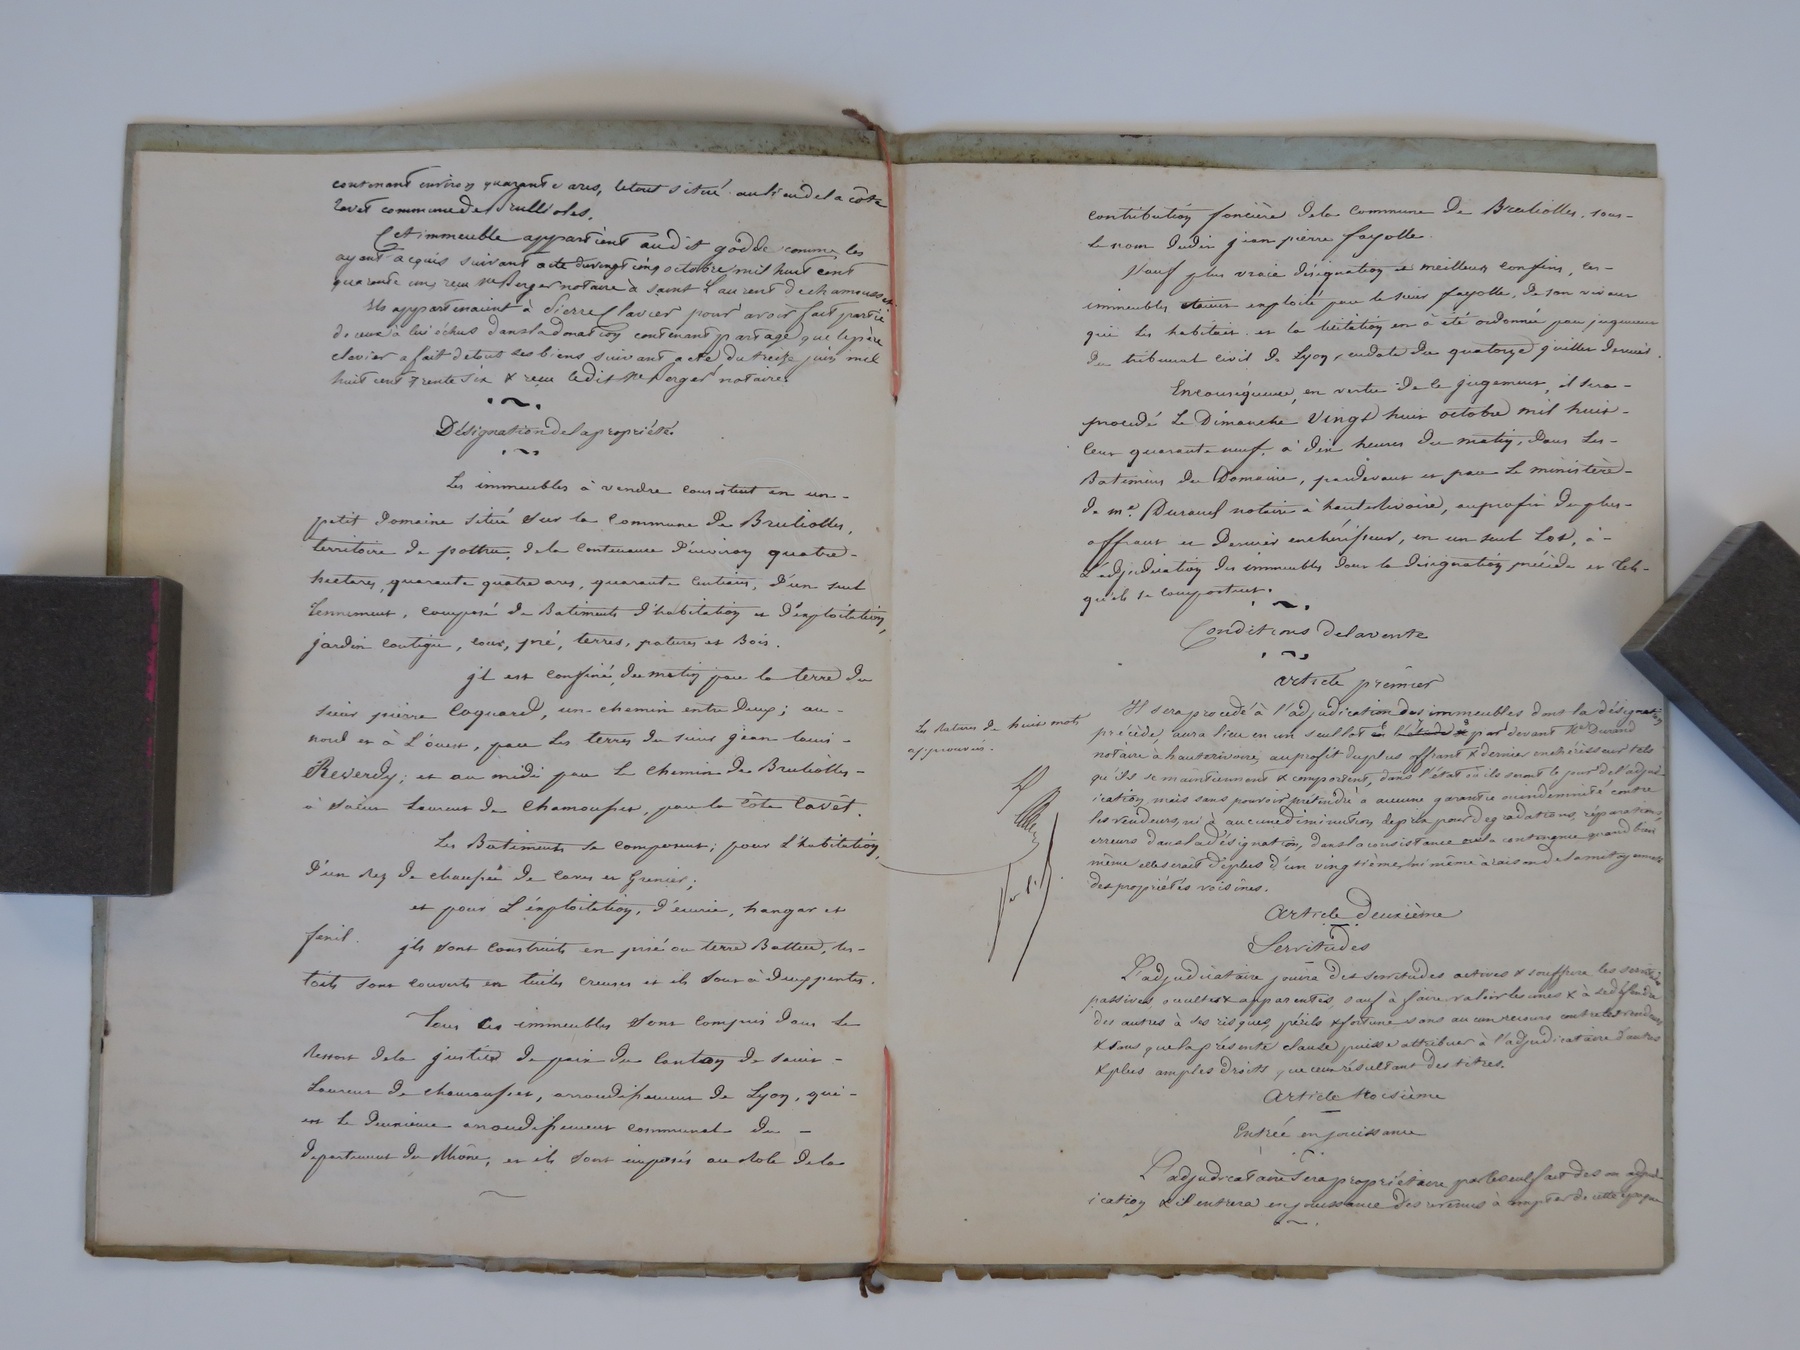 contenant environ quarante ares, letout situé au lieu de la côte
Lavet commune de Brulliolles.
Cet immeuble appartient au dit godde comme les
ayant acquis suivant acte du vingt cinq octobre mil huit cent
quarante cinq reçu Me Berger notaire à saint Laurent de chamousset
Ils appartenaient à Pierre Clavier pour avoir fait partie
de ceux à lui échus dans la donation contenant partage que le père
clavier a fait de tout ses biens suivant acte du treize juin mil
huit cent trente six & reçu ledit Me Berger notaire
Désignation de la propriété.
Les immeubles à vendre consistent en un-
petit Domaine situé sur la Commune de Brulliolles,
territoire de pothu, de la Contenance d'environ quatre-
hectares, quarante quatre ares, quarante Centiares, d'un seul
Tennement, composé de Batiments d'habitation et d'exploitation,
jardin contigu, cour, pré, terres, patures et Bois.
jl est Confiné, du matin par la terre du
sieur pierre Coquard, un chemin entre deux; au-
nord et à L'ouest, par Les terres du sieur jean louis-
Reverdy; et au midi par Le chemin de Brulliolles-
à Saint Laurent de Chamousset, par la Côte Lavêt.
Les Batiments se composent; pour L'habitation,
D'un Rez de chaussée de Caves et Grenier;
et pour L'éxploitation, d'écurie, hangar et
fenil. jls sont Construits en pisé ou terre Battue, les-
toits sont couverts en tuiles creuses et ils sont à deux pentes.
Tous Ces immeubles sont Compris dans Le
Ressort de la justice de paix du Canton de saint-
Laurent de chamousset, arrondissement de Lyon, qui-
est Le Deuxième arrondissement Communal du-
département du Rhône, et ils sont imposés au Rôle de la
contribution foncière de la Commune de Brulliolles, sous-
Le nom dudit jean pierre fayolle.
Sauf plus vraie désignation et meilleurs confins, ces-
immeubles étaient exploité par le sieur fayolle, de son vivant
qui Les habitait. et la licitation en à été ordonnée par jugement
du tribunal civil de Lyon, endate du quatorze juillet dernier.
Enconséquence, en vertu de ce jugement, il sera-
procédé Le Dimanche Vingt huit octobre mil huit-
Cent quarante neuf, à dix heures du matin, dans Les-
Batiments du Domaine, pardevant et par Le ministère-
de me. Durand notaire à hauterivoire, auprofit du plus-
offrant et Dernier enchérisseur, en un seul Lot, à-
L'adjudication des immeubles dont la désignation précède et tels-
qu'ils se comportent.
Conditions de la vente
Article premier
Il sera procédé à l'adjudication des immeubles dont la désignation
précède, aura lieu en un seul lot par devant Me Durand
notaire à hauterivoire, au profit du plus offrant & dernier enchérisseur tels
qu'ils se maintiennent & comportent, dans l'état où ils seront le jour de l'adjud-
ication, mais sans pouvoir prétendre à aucune garantie ni indemnité contre
les vendeurs, ni à aucune diminution de prix pour dégradations, réparations,
erreurs dans la désignation, dans la consistance ou la contenance quand bien
même elle serait de plus d'un vingtième, ni même à raison de la mitoyenneté
des propriétés voisines.
Les Ratures de huit mots
approuvées.
Article Deuxième
Servitudes
L'adjudicataire jouira des servitudes actives & souffrira les servitudes
passives occultes & apparentes, sauf à faire valoir les unes & à se défendre
des autres à ses risques, périls & fortune sans aucun recours contre les vendeurs
& sans que la présente clause puisse attribuer à l'adjudicataire d'autres
& plus amples droits que ceux résultant des titres.
Article troisième
Entrée en jouissance
L'adjudicataire sera propriétaire par le seul fait de son adjud-
ication & il entrera en jouissance des revenus à compter de cette époque